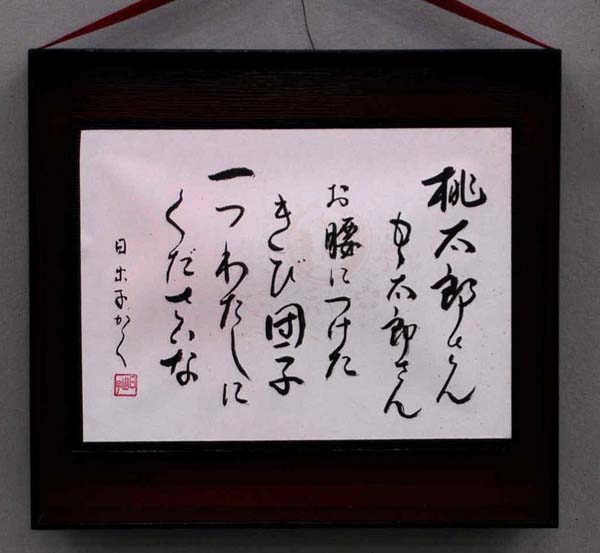 桃太郎さん
もゝ太郎さん
お腰につけた
きび団子
一つわたしに
くださいな
日出子かく